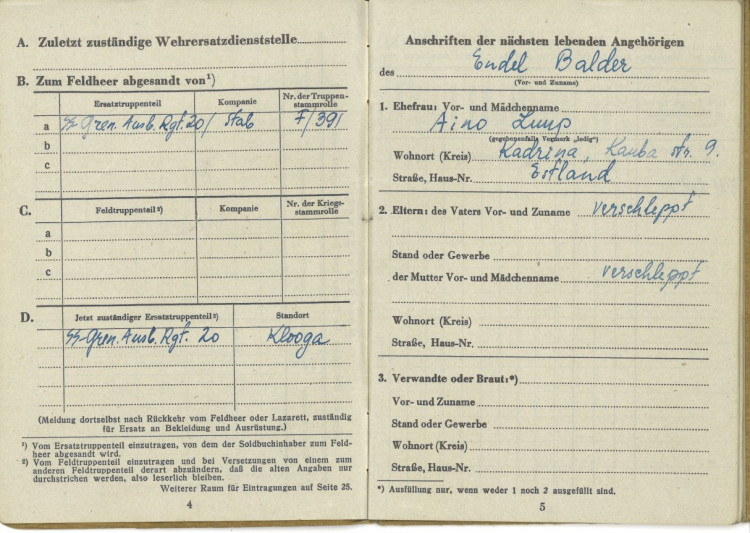 A. Zuletzt zuständige Wehrersatzdienststelle
B. Zum Feldheer abgesandt von¹)
Ersatztruppenteil Kompanie Nr. der Truppen-
stammrolle
a SS-Gren. Ausb. Rgt. 20/ Stab F/391
b
c
C. Feldtruppenteil²) Kompanie Nr. der Kriegs-
stammrolle
a
b
c
D. Jetzt zuständiger Ersatztruppenteil²) Standort
SS-Gren. Ausb. Rgt. 20 Klooga
(Meldung dortselbst nach Rückkehr vom Feldheer oder Lazarett, zuständig
für Ersatz an Bekleidung und Ausrüstung.)
¹) Vom Ersatztruppenteil einzutragen, von dem der Soldbuchinhaber zum Feld-
heer abgesandt wird.
²) Vom Feldtruppenteil einzutragen und bei Versetzungen von einem zum
anderen Feldtruppenteil derart abzuändern, daß die alten Angaben nur
durchstrichen werden, also leserlich bleiben.
Weiterer Raum für Eintragungen auf Seite 25.
4
Anschriften der nächsten lebenden Angehörigen
des Endel Balder
(Vor- und Zuname)
1. Ehefrau: Vor- und Mädchenname
Aino Luup
(gegebenenfalls Vermerk „ledig“)
Wohnort (Kreis) Kadrina, Kauba str. 9.
Straße, Haus-Nr. Estland
2. Eltern: des Vaters Vor- und Zuname verschleppt
Stand oder Gewerbe
der Mutter Vor- und Mädchenname verschleppt
Wohnort (Kreis)
Straße, Haus-Nr.
3. Verwandte oder Braut:*)
Vor- und Zuname
Stand oder Gewerbe
Wohnort (Kreis)
Straße, Haus-Nr.
*) Ausfüllung nur, wenn weder 1 noch 2 ausgefüllt sind.
5